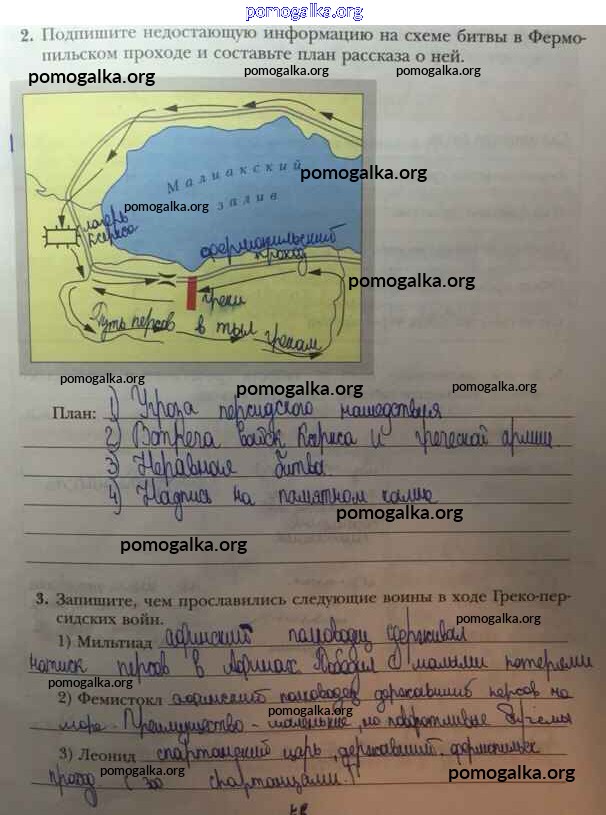 pomogalka.org
2. Подпишите недостающую информацию на схеме битвы в Фермо-
пильском проходе и составьте план рассказа о ней.
pomogalka.org pomogalka.org pomogalka.org
Малиакский
pomogalka.org
залив
pomogalka.org
лагерь
Ксеркса
Фермопильский
проход
pomogalka.org
греки
Путь персов в тыл грекам
pomogalka.org pomogalka.org pomogalka.org
План: 1) Угроза персидского нашествия
2) Встреча войск Ксеркса и греческой армии
3) Неравная битва
4) Надпись на памятном камне
pomogalka.org
pomogalka.org
3. Запишите, чем прославились следующие воины в ходе Греко-пер-
сидских войн.
pomogalka.org
1) Мильтиад афинский полководец сдерживал
натиск персов в Афинах Победил с малыми потерями
pomogalka.org pomogalka.org
2) Фемистокл афинский полководец державший персов на
pomogalka.org
море. Преимущество - маленькие, но поворотливые
3) Леонид спартанский царь, державший фермопильск
проход с 300 спартанцами.
pomogalka.org pomogalka.org